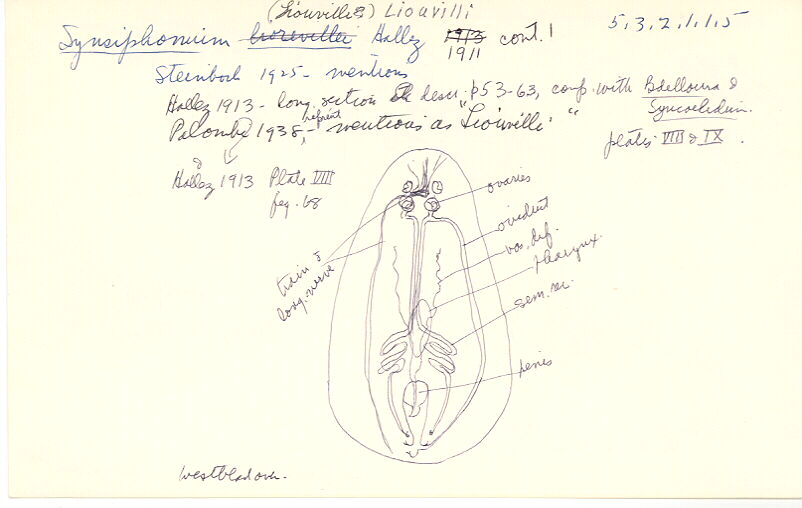 (Liouvilles) Liouvilli
Synsiphonium liouvillei Hallez 1913 1911 cont. 1
5,3,2,1,1,5
Steinbock 1925 - mentions
Hallez 1913 - long. section & descr. p53-63, comp. with Bdelloura & Syncoelidium.
Palombi 1938, reprint - mentions as "Liouvilli"
plates VIII & IX.
Hallez 1913 Plate VIII
fig. 68
ovaries
oviduct
vas. def.
pharynx.
sem. rec.
brain &
long. nerve
penis
westblad over.